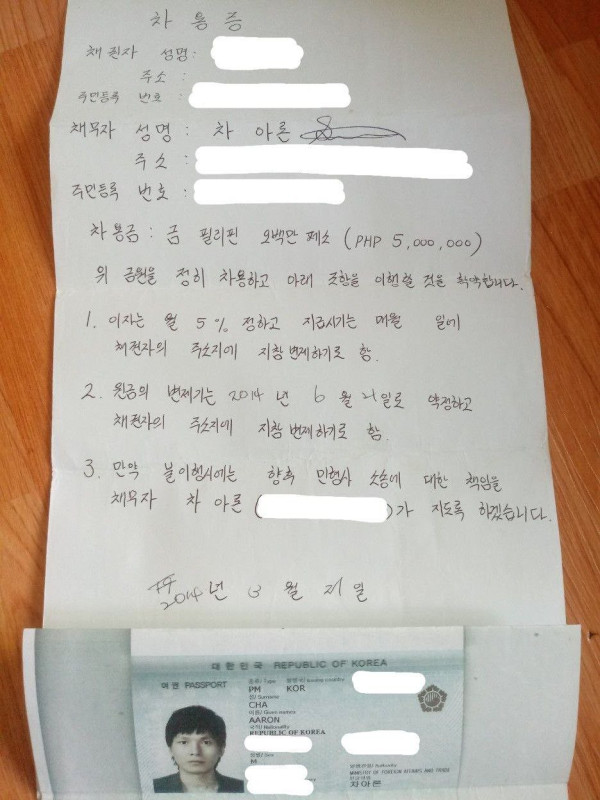 차 용 증
채권자 성명 :
주소 :
주민등록 번호 :
채무자 성명 : 차 아론
주소 :
주민등록 번호 :
차용금 : 금 필리핀 오백만 페소 (PHP 5,000,000)
위 금원을 정히 차용하고 아래 조항을 이행할 것을 확약합니다.
1. 이자는 월 5% 정하고 지급시기는 매월 일에
채권자의 주소지에 지참변제하기로 함.
2. 원금의 변제기는 2014년 6월 21일로 약정하고
채권자의 주소지에 지참변제하기로 함.
3. 만약 불이행시에는 향후 민형사 소송에 대한 책임을
채무자 차 아론 ( )가 지도록 하겠습니다.
2014년 3월 21일
대한민국 REPUBLIC OF KOREA
여권 PASSPORT
종류/ Type
PM KOR
성/ Surname
CHA
이름/ Given names
AARON
국적/ Nationality
REPUBLIC OF KOREA
성별/ Sex
M
발행관청/ Authority
MINISTRY OF FOREIGN AFFAIRS AND TRADE
한글성명
차아론